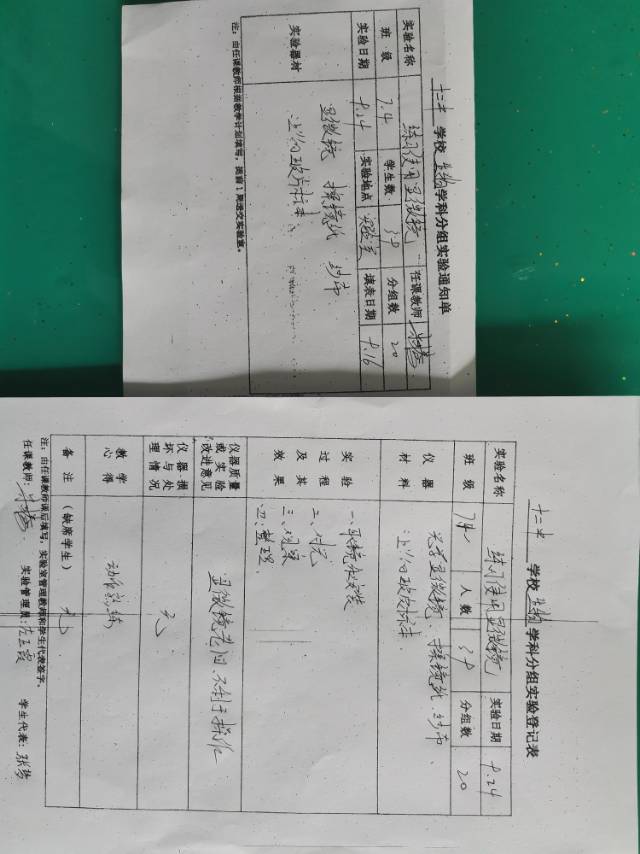 十二中 学校 生物 学科分组实验通知单
实验名称 练习使用显微镜 任课教师
班级 7.4 学生数 39 分组数 20
实验日期 9.24 实验地点 实验室 填表日期 9.16
实验器材 显微镜 擦镜纸 纱布
上公的玻片标本
注：由任课教师根据教学计划填写，提前1周送交实验室。
十二中 学校 生物 学科分组实验登记表
实验名称 练习使用显微镜 实验日期 9.24
班级 7.4 人数 39 分组数 20
仪器材料 光学显微镜、擦镜纸、纱布、
玻片标本
实验过程及其效果 一、取镜和安装
二、对光
三、观察
四、整理
仪器质量或实验改进意见 显微镜老旧、不利于操作
仪器损坏与处理情况 无
教学心得 动作熟练
备注 （缺席学生） 无
注：由任课教师课后填写，实验室管理教师和学生代表签字。
任课教师： 实验管理员：左玉霞 学生代表：张梦